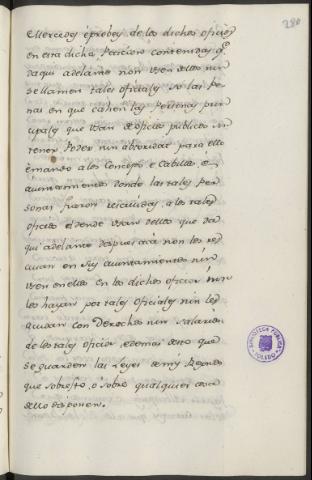 280
Mercedes e probeys de los dichos oficios
en esta dicha Peticion contenidas q.
daqui adelante non usen dellos nin
se llamen tales oficiales so las pe-
nas en que cahen las Personas prin-
cipales que usan de oficio publico sin
tener Poder nin abtoridad para ello
e mando a los Concejos e Cabillos e
ayuntamientos donde las tales per-
sonas fueron recividas, a los tales
oficios e dende usan dellos que da
qui adelante daqui non los res-
ciuan en sus ayuntamientos nin
usen en ellos en los dichos oficios nin
los hayan por tales oficiales nin les
acudan con derechos nin salarios
de los tales oficios, e demas desto que
se guarden las leyes de mis Reynos
que sobresto, o sobre qualquier cosa
dello disponen.
BIBLIOTECA PUBLICA
TOLEDO